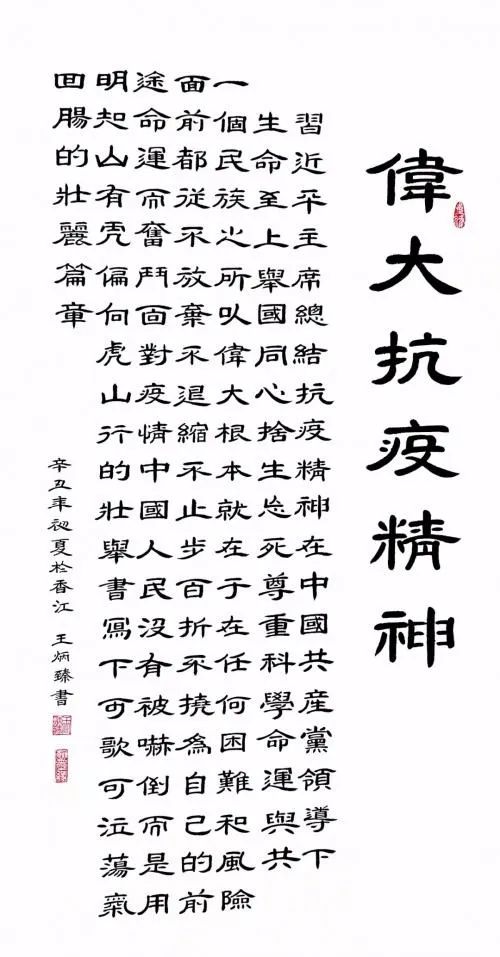 偉大抗疫精神
習近平主席總結抗疫精神在中國共産黨領導下
生命至上舉國同心捨生忘死尊重科學命運與共
一個民族之所以偉大根本就在于在任何困難和風險
面前都從不放棄不退縮不止步百折不撓為自己的前
途命運而奮鬥面對疫情中國人民沒有被嚇倒而是用
明知山有虎偏向虎山行的壯舉書寫下可歌可泣蕩氣
回腸的壯麗篇章
辛丑年初夏於香江 王炳臻書